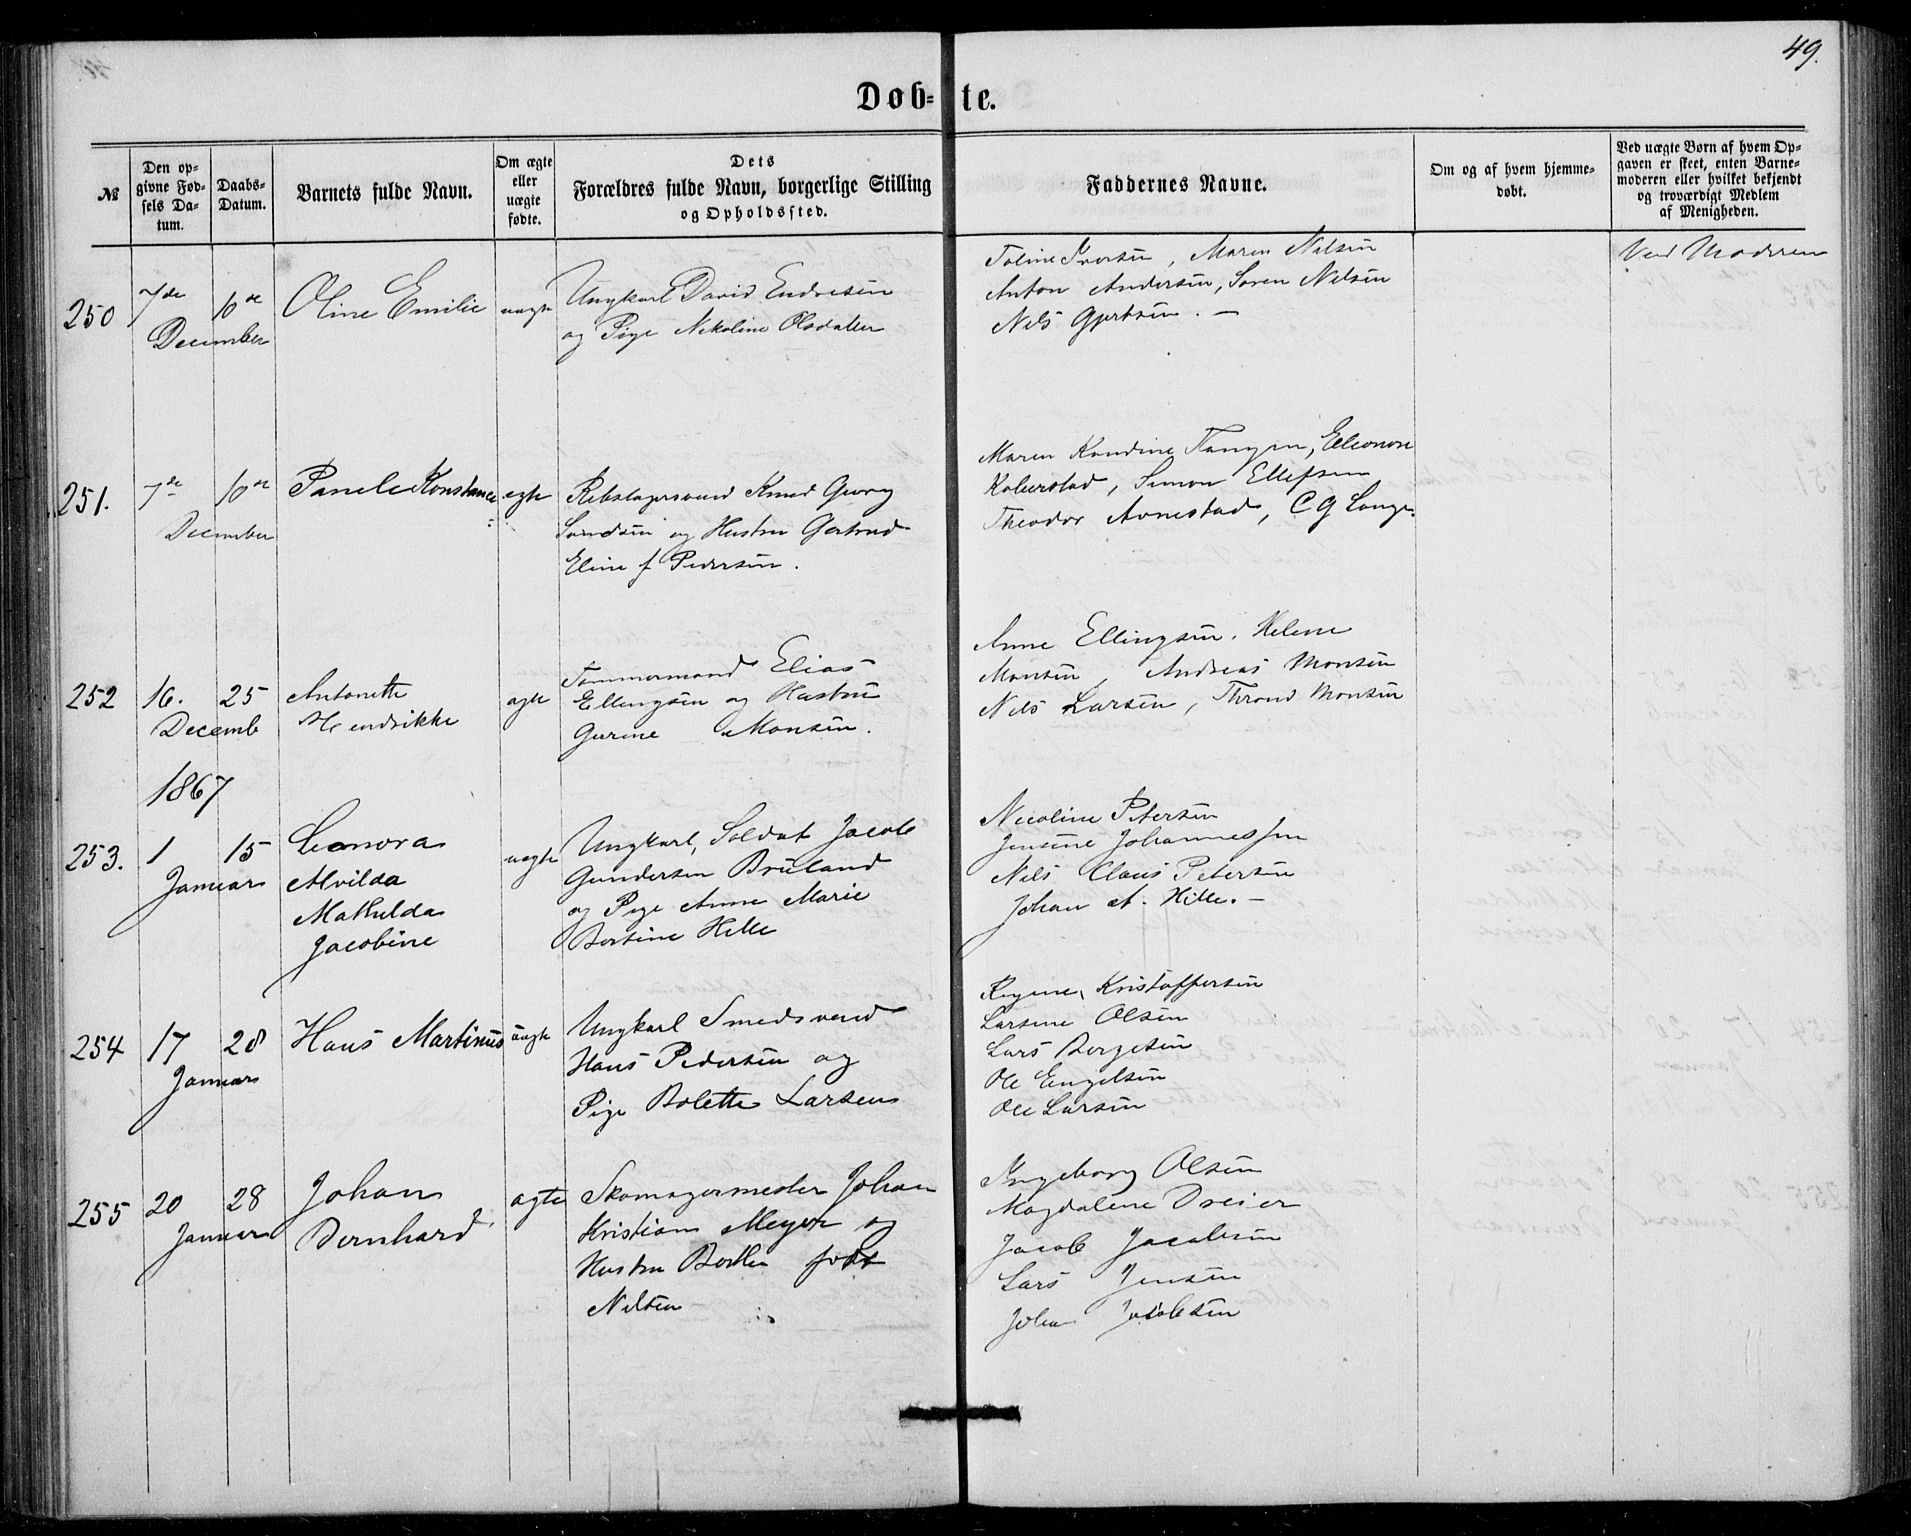 49.
Døb-te.
№
Den op-
givne Fød-
sels Da-
tum.
Daabs-
Datum.
Barnets fulde Navn.
Om ægte
eller
uægte
fødte.
Dets
Forældres fulde Navn, borgerlige Stilling
og Opholdssted.
Faddernes Navne.
Om og af hvem hjemme-
døbt.
Ved uægte Børn af hvem Op-
gaven er skeet, enten Barne-
moderen eller hvilket bekjendt
og troværdigt Medlem
af Menigheden.
250 7de 10de
December
Oline Emilie
uægte
Ungkarl David Endresen
og Pige Nikoline Olsdatter
Toline Iversen, Maren Nilsen
Anton Andersen, Søren Nilsen
Nils Gjertsen. —
Ved Moderen
251. 7de 10de
December
Konstance
ægte
Rebslagersvend Knud Georg
og Hustru Gertrud
Eline f Pedersen.
Maren Kondine Eleonore
Simon Ellefsen
Theodor C G Lange.
252 16. 25
Decemb
Antonette
Hendrikke
ægte
Tømmermand Elias
Ellingsen og Hustru
Gurine Monsen.
Anne Ellingsen. Helene
Monsen, Andreas Monsen
Nils Larsen, Thrond Monsen
1867
253. 1 15
Januar
Leonora
Alvilda
Mathilda
Jacobine
uægte
Ungkarl, Soldat Jacob
Gundersen Bruland
og Pige Anne Marie
Bertine Hille
Nicoline Petersen
Jensine Johannessen
Nils Claus Petersen
Johan A. Hille. —
254 17 28
Januar
Hans Martinus
uægte
Ungkarl Smedsvend
Hans Pedersen og
Pige Bolette Larsen
Regine Kristoffersen
Larsine Olsen
Lars Børgesen
Ole Engelsen
Ole Larsen
255 20 28
Januar
Johan
Bernhard
ægte
Skomagermester Johan
Kristian Meyer og
Hustru født
Nilsen
Ingeborg Olsen
Magdalene Dreier
Jacob Jacobsen
Lars Jensen
Johan Jacobsen